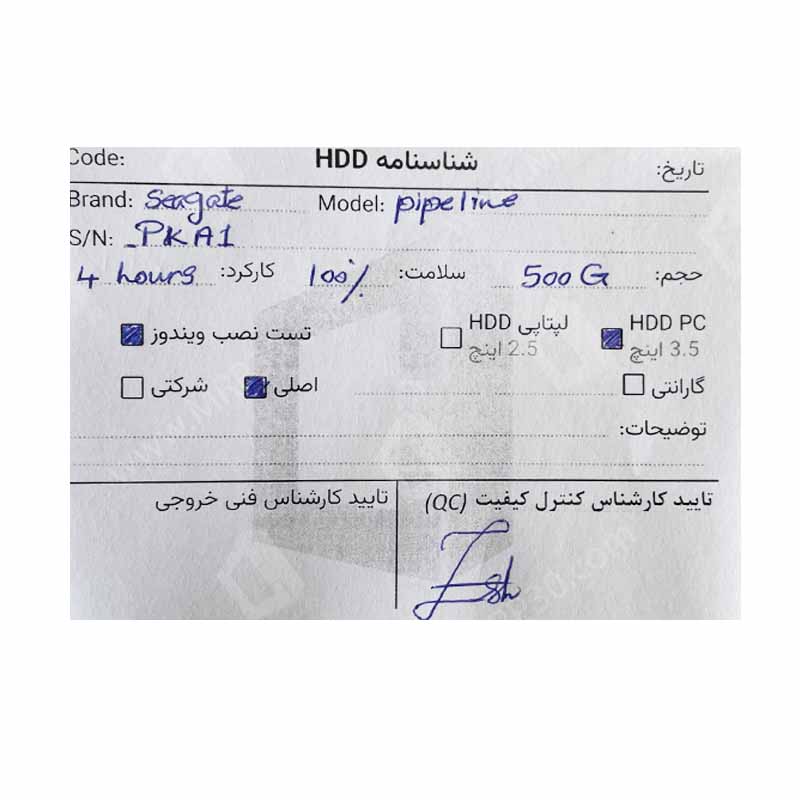 تاریخ: شناسنامه HDD Code:
Brand: Seagate Model: pipeline
S/N: _PKA1
حجم: 500 G سلامت: 100% کارکرد: 4 hours
HDD PC 3.5 اینچ HDD لپتاپی 2.5 اینچ تست نصب ویندوز
گارانتی اصلی شرکتی
توضیحات:
تایید کارشناس کنترل کیفیت (QC) تایید کارشناس فنی خروجی